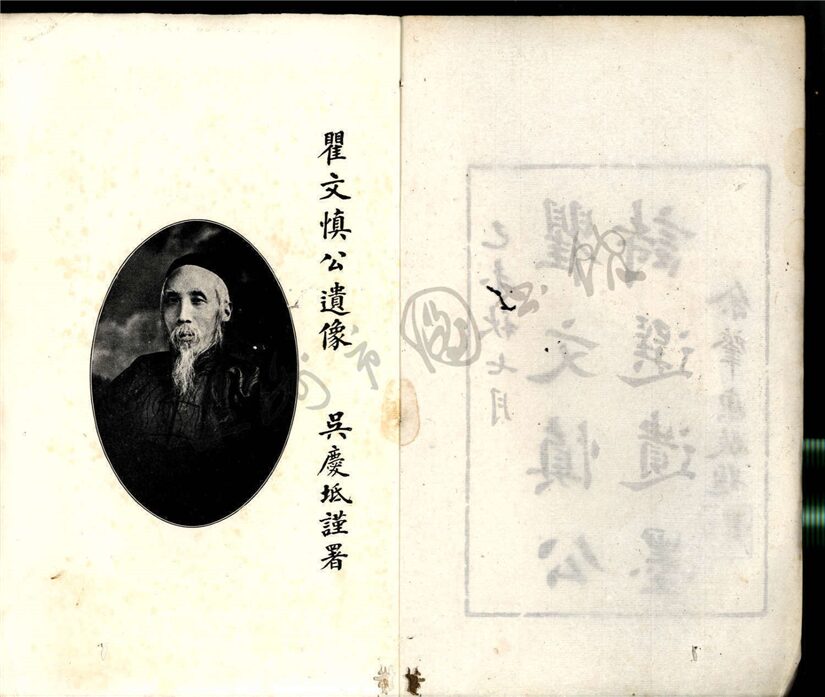 瞿文慎公遺像
吳慶坻謹署
瞿文慎公
詩選遺墨